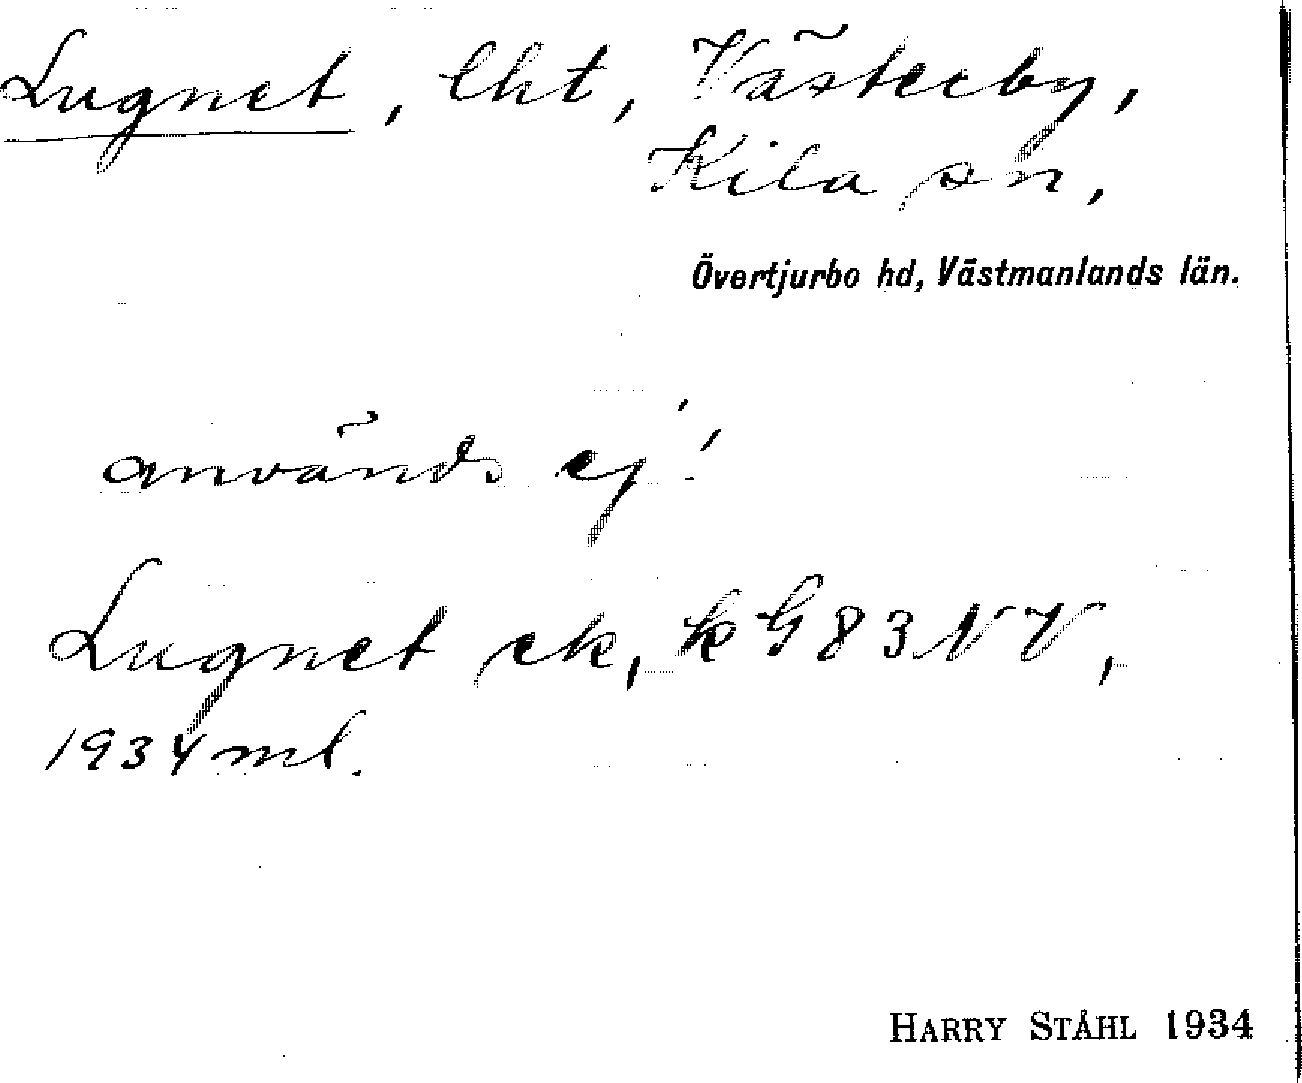 Lugnet, lht, Västerby,
Kila sn,
Övertjurbo hd, Västmanlands län.
används ej!
Lugnet ek, k G 83 NV,
1934 ml.
HARRY STÅHL 1934